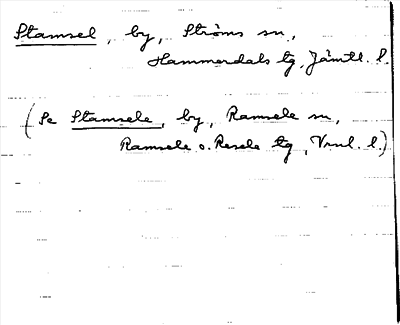 Stamsel, by, Ströms sn,
Hammerdals tg, Jämtl. l.
(Se Stamsele, by, Ramsele sn,
Ramsele o. Resele tg, Vnl. l.)